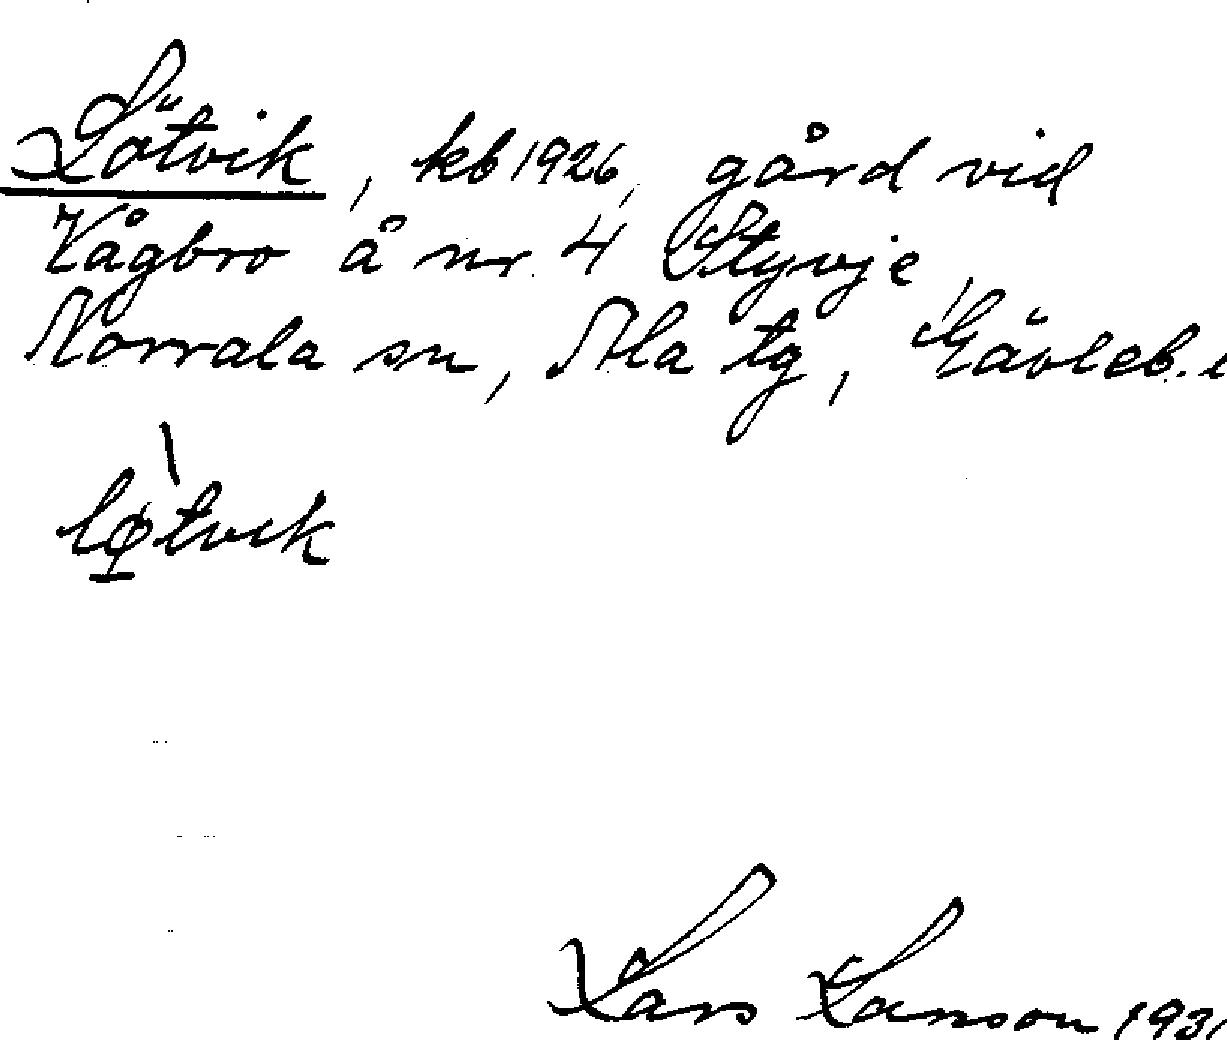 Lötvik, kb 1926, gård vid
Vågbro å nr 4 Styvje,
Norrala sn, Ala tg, Gävleb.
lø̀tvik
Lars Larsson 193